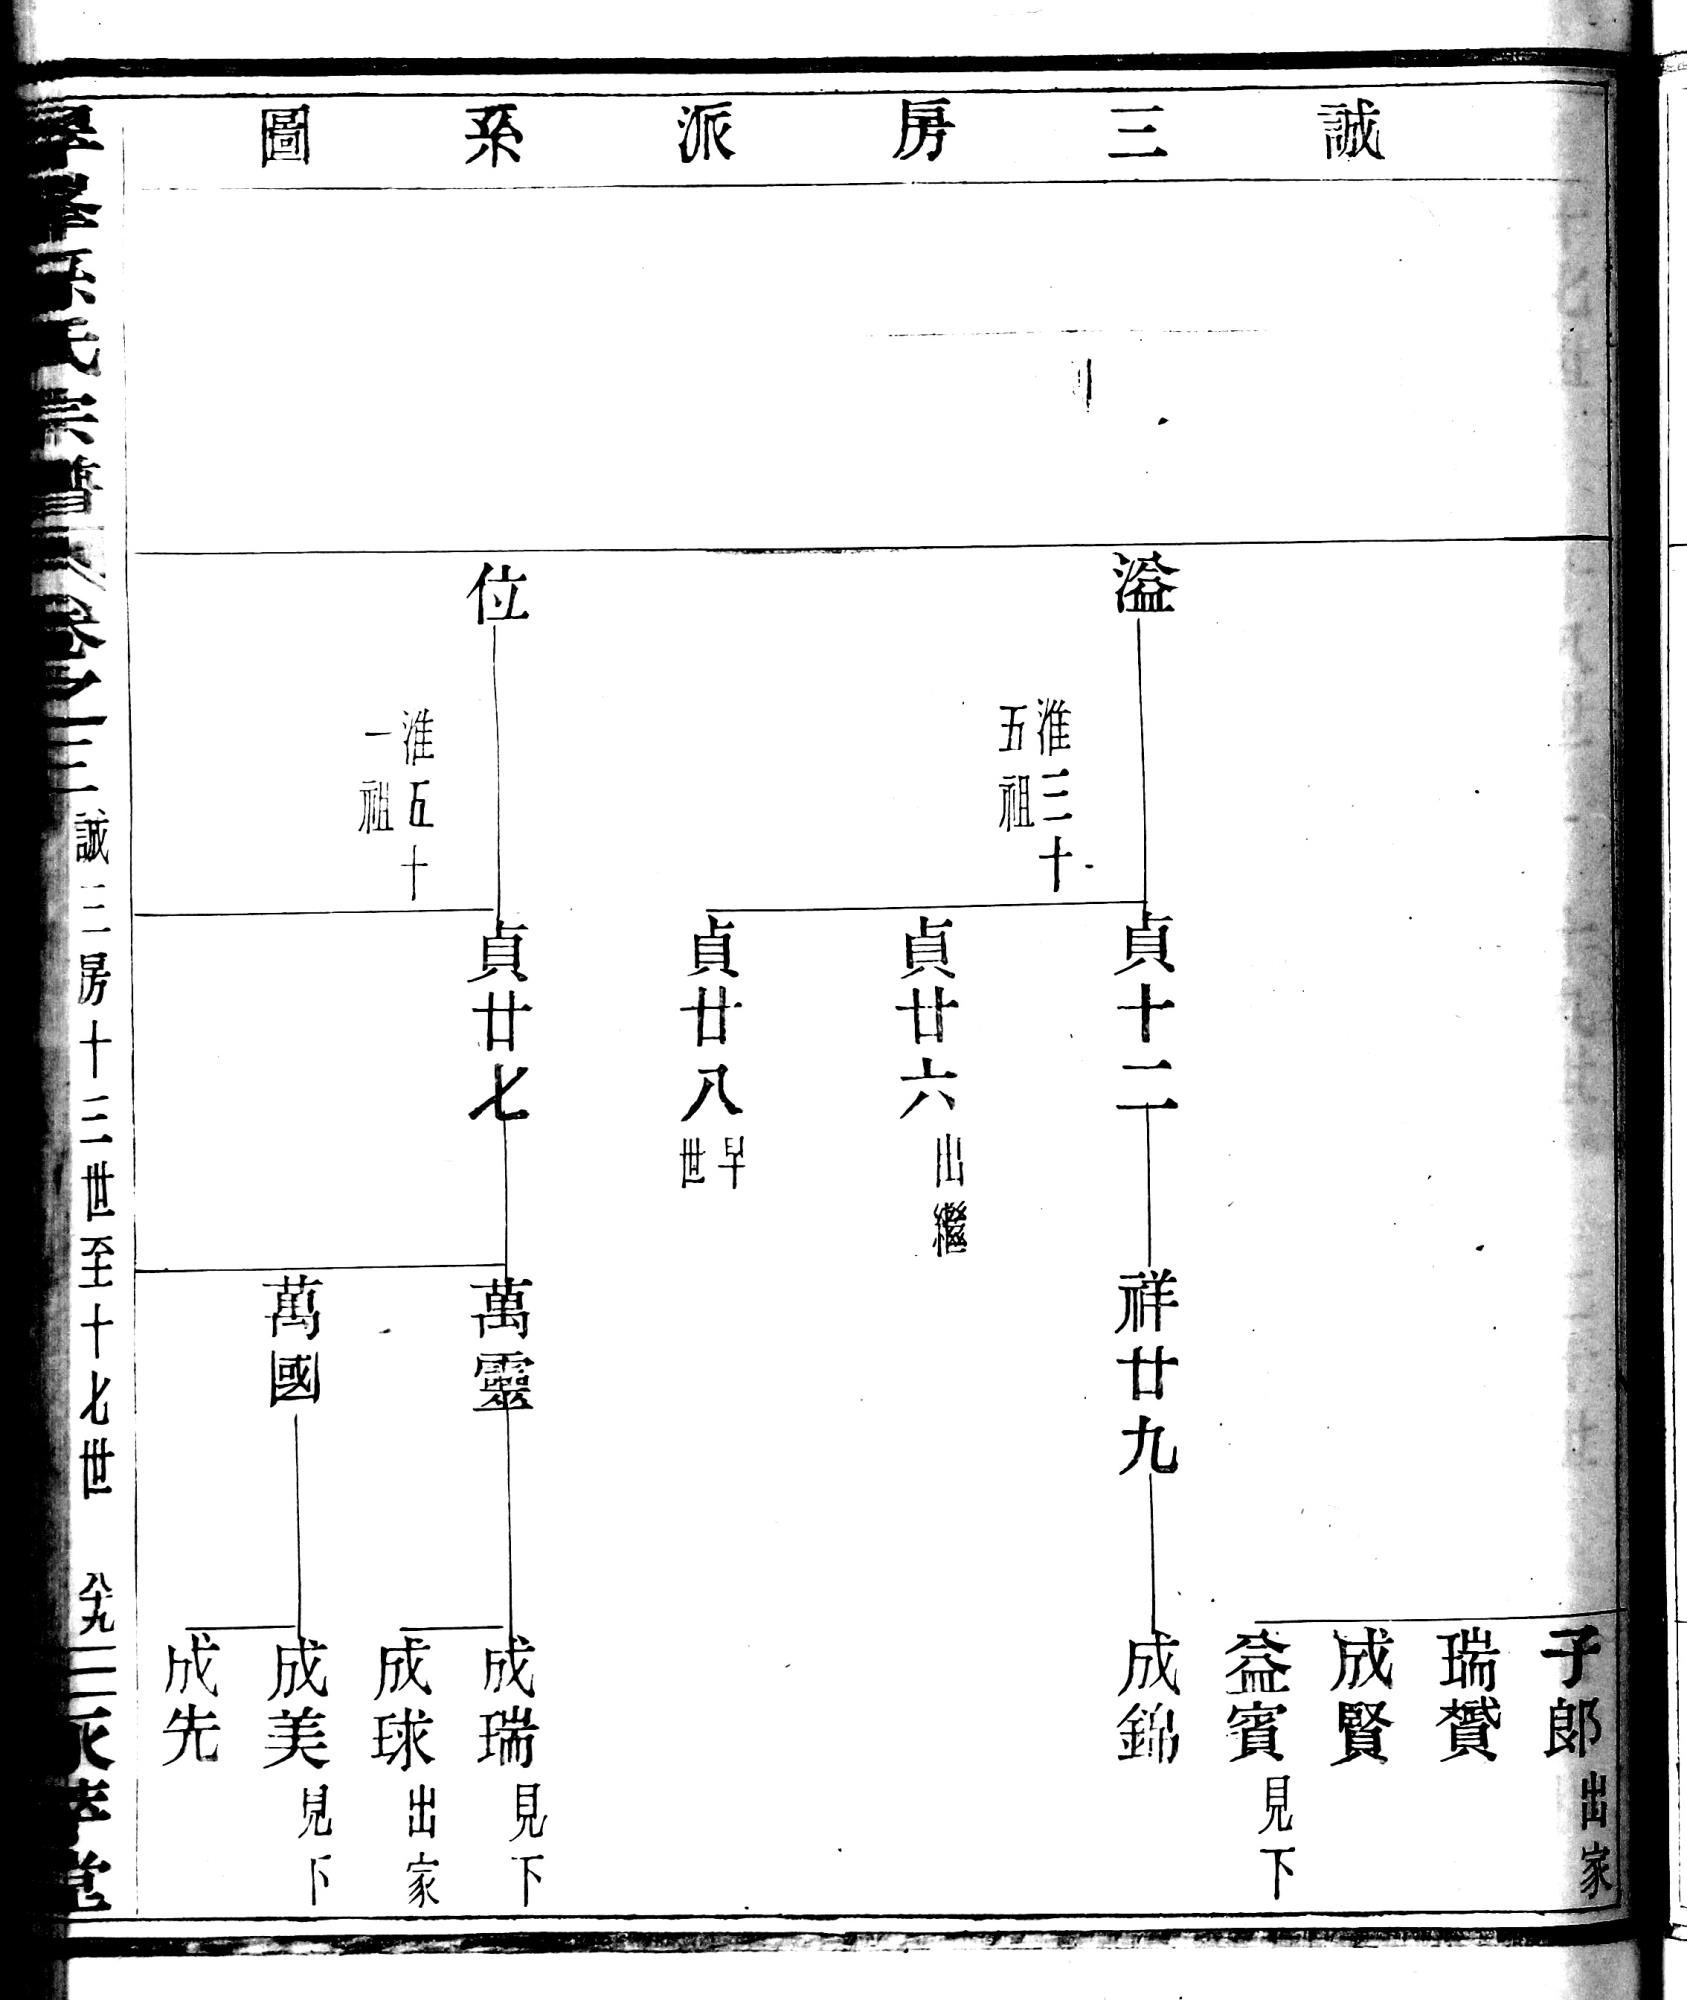 誠三房派系圖
溢
淮三十
五祖
位
淮五十
一祖
貞十二
貞廿六 出繼
貞廿八 早世
貞廿七
祥廿九
萬靈
萬國
子郎 出家
瑞贇
成賢
益賓 見下
成錦
成瑞 見下
成球 出家
成美 見下
成先
氏宗譜 卷之三 誠三房十三世至十七世 八十九 孝堂